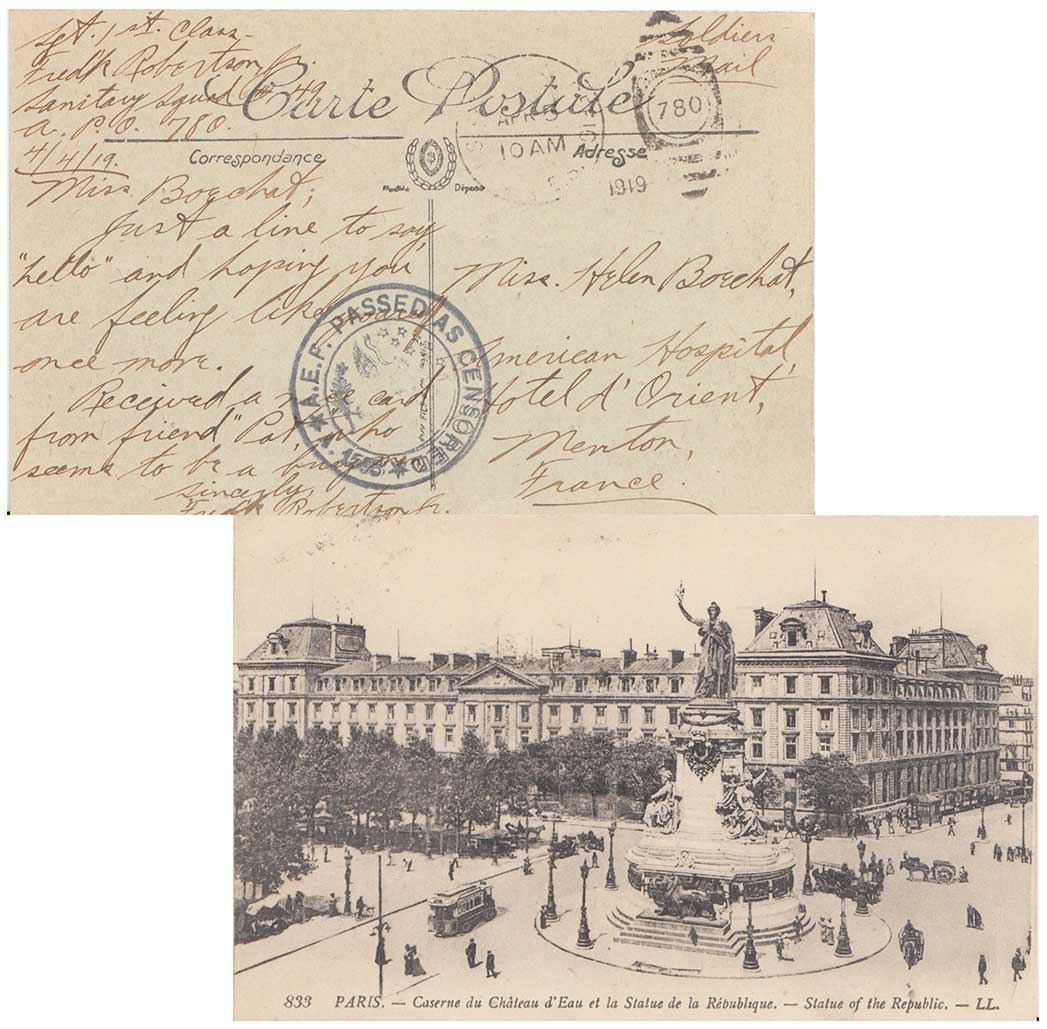 Sgt. 1st. Class-
Fredk Robertson Jr.
Sanitary Squad # 49
A. P. O. 780.
4/4/19.
Soldiers
Mail
Carte Postale
Correspondance
Adresse
Modèle Déposé
APR 5
10 AM
1919
780
Miss. Boechat;
Just a line to say
"hello" and hoping you
are feeling like yourself
once more.
Received a nice card
from friend "Pat" who
seems to be a busy man.
Sincerely,
Fredk Robertson Jr.
Miss. Helen Boechat,
American Hospital,
Hotel d' Orient,
Menton,
France.
A.E.F. PASSED AS CENSORED
833 PARIS. — Caserne du Château d'Eau et la Statue de la République. — Statue of the Republic. — LL.